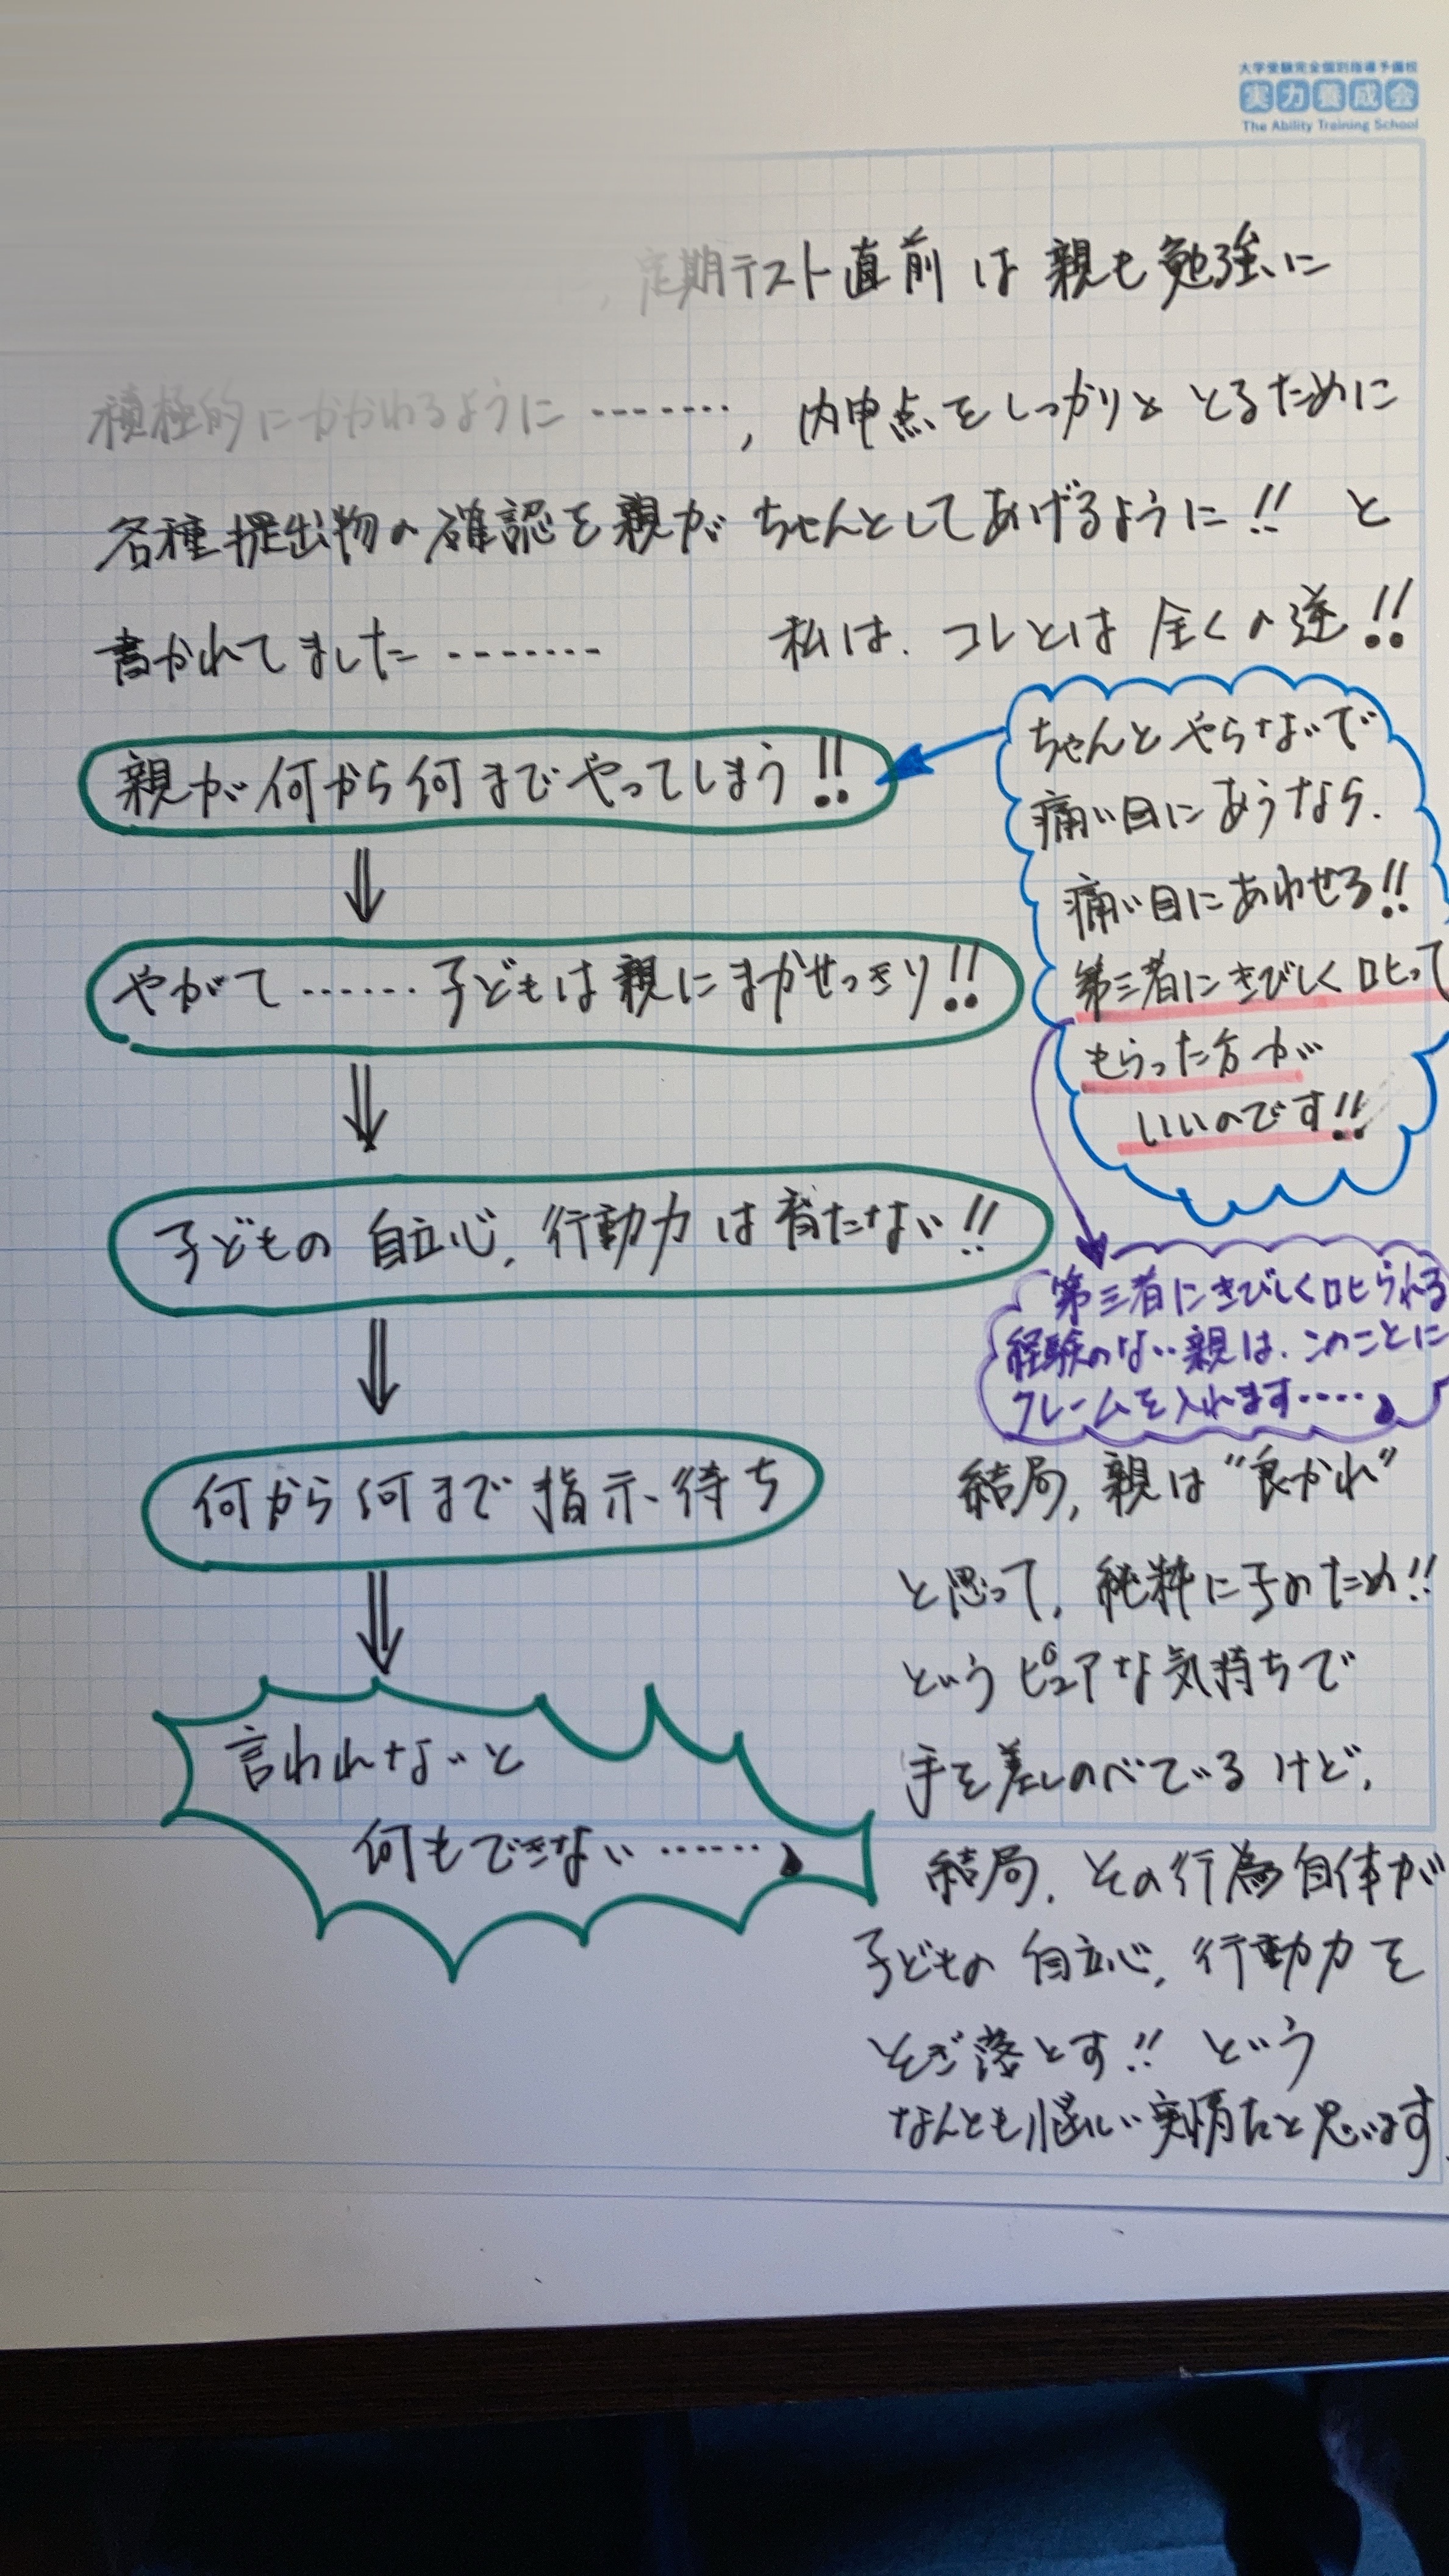 大学受験完全個別指導予備校
実力養成会
The Ability Training School
定期テスト直前は親も勉強に
積極的にかかわるように……., 内申点をしっかりととるために
各種提出物の確認を親がちゃんとしてあげるように!! と
書かれてました……. 私は、コレとは全くの逆!!
親が何から何までやってしまう!!
⇓
やがて……子どもは親にまかせっきり!!
⇓
子どもの自立心,行動力は育たない!!
⇓
何から何まで指示待ち
⇓
言われないと
何もできない……。
ちゃんとやらないで
痛い目にあうなら、
痛い目にあわせろ!!
第三者にきびしく叱って
もらった方が
いいのです!!
第三者にきびしく叱られる
経験のない親は、このことに
クレームを入れます‥‥。
結局,親は“良かれ”
と思って,純粋に子のため!!
というピュアな気持ちで
手を差しのべているけど,
結局,その行為自体が
子どもの自立心,行動力を
そぎ落とす!! という
なんとも悩しい実情だと思います.